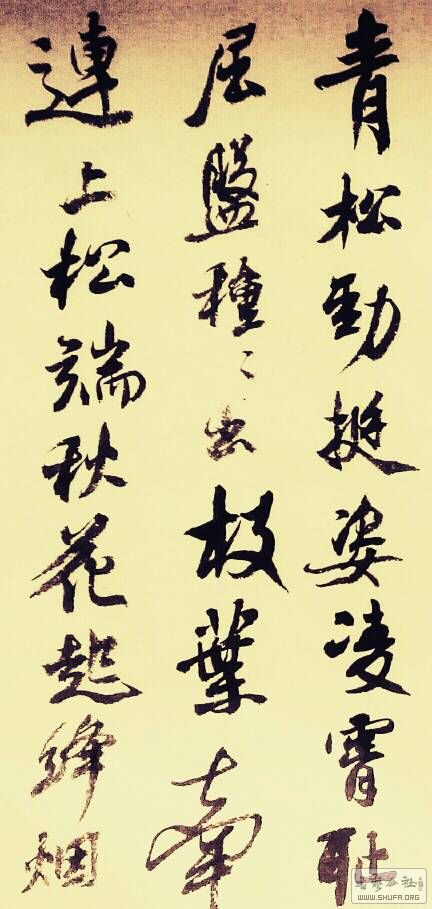 青松勁挺姿凌霄恥
屈盤種〻出枝葉牽
連上松端秋花起絳烟
WWW.SHUFA.ORG